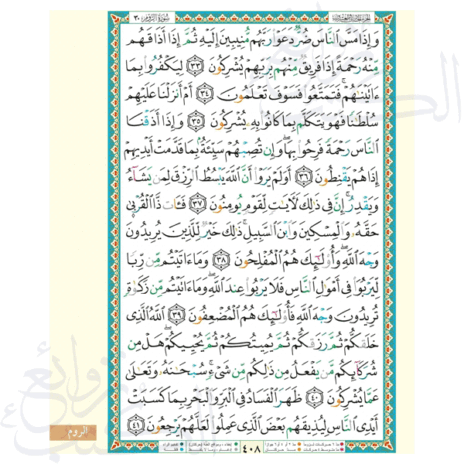 الجزء الحادي والعشرون سورة الروم ٣٠
وَإِذَا مَسَّ النَّاسَ ضُرٌّ دَعَوْا رَبَّهُم مُّنِيبِينَ إِلَيْهِ ثُمَّ إِذَا أَذَاقَهُم
مِّنْهُ رَحْمَةً إِذَا فَرِيقٌ مِّنْهُم بِرَبِّهِمْ يُشْرِكُونَ ٣٣ لِيَكْفُرُوا بِمَا
ءَاتَيْنَٰهُمْ فَتَمَتَّعُوا فَسَوْفَ تَعْلَمُونَ ٣٤ أَمْ أَنزَلْنَا عَلَيْهِمْ
سُلْطَٰنًا فَهُوَ يَتَكَلَّمُ بِمَا كَانُوا بِهِ يُشْرِكُونَ ٣٥ وَإِذَا أَذَقْنَا
النَّاسَ رَحْمَةً فَرِحُوا بِهَا وَإِن تُصِبْهُمْ سَيِّئَةٌ بِمَا قَدَّمَتْ أَيْدِيهِمْ
إِذَا هُمْ يَقْنَطُونَ ٣٦ أَوَلَمْ يَرَوْا أَنَّ اللَّهَ يَبْسُطُ الرِّزْقَ لِمَن يَشَاءُ
وَيَقْدِرُ إِنَّ فِي ذَٰلِكَ لَءَايَٰتٍ لِّقَوْمٍ يُؤْمِنُونَ ٣٧ فَـَٔاتِ ذَا الْقُرْبَىٰ
حَقَّهُ وَالْمِسْكِينَ وَابْنَ السَّبِيلِ ذَٰلِكَ خَيْرٌ لِّلَّذِينَ يُرِيدُونَ
وَجْهَ اللَّهِ وَأُولَٰئِكَ هُمُ الْمُفْلِحُونَ ٣٨ وَمَا ءَاتَيْتُم مِّن رِّبًا
لِّيَرْبُوَا فِي أَمْوَٰلِ النَّاسِ فَلَا يَرْبُوا عِندَ اللَّهِ وَمَا ءَاتَيْتُم مِّن زَكَوٰةٍ
تُرِيدُونَ وَجْهَ اللَّهِ فَأُولَٰئِكَ هُمُ الْمُضْعِفُونَ ٣٩ اللَّهُ الَّذِي
خَلَقَكُمْ ثُمَّ رَزَقَكُمْ ثُمَّ يُمِيتُكُمْ ثُمَّ يُحْيِيكُمْ هَلْ مِن
شُرَكَائِكُم مَّن يَفْعَلُ مِن ذَٰلِكُم مِّن شَيْءٍ سُبْحَٰنَهُ وَتَعَٰلَىٰ
عَمَّا يُشْرِكُونَ ٤٠ ظَهَرَ الْفَسَادُ فِي الْبَرِّ وَالْبَحْرِ بِمَا كَسَبَتْ
أَيْدِي النَّاسِ لِيُذِيقَهُم بَعْضَ الَّذِي عَمِلُوا لَعَلَّهُمْ يَرْجِعُونَ ٤١
٤٠٨
الروم
روائع